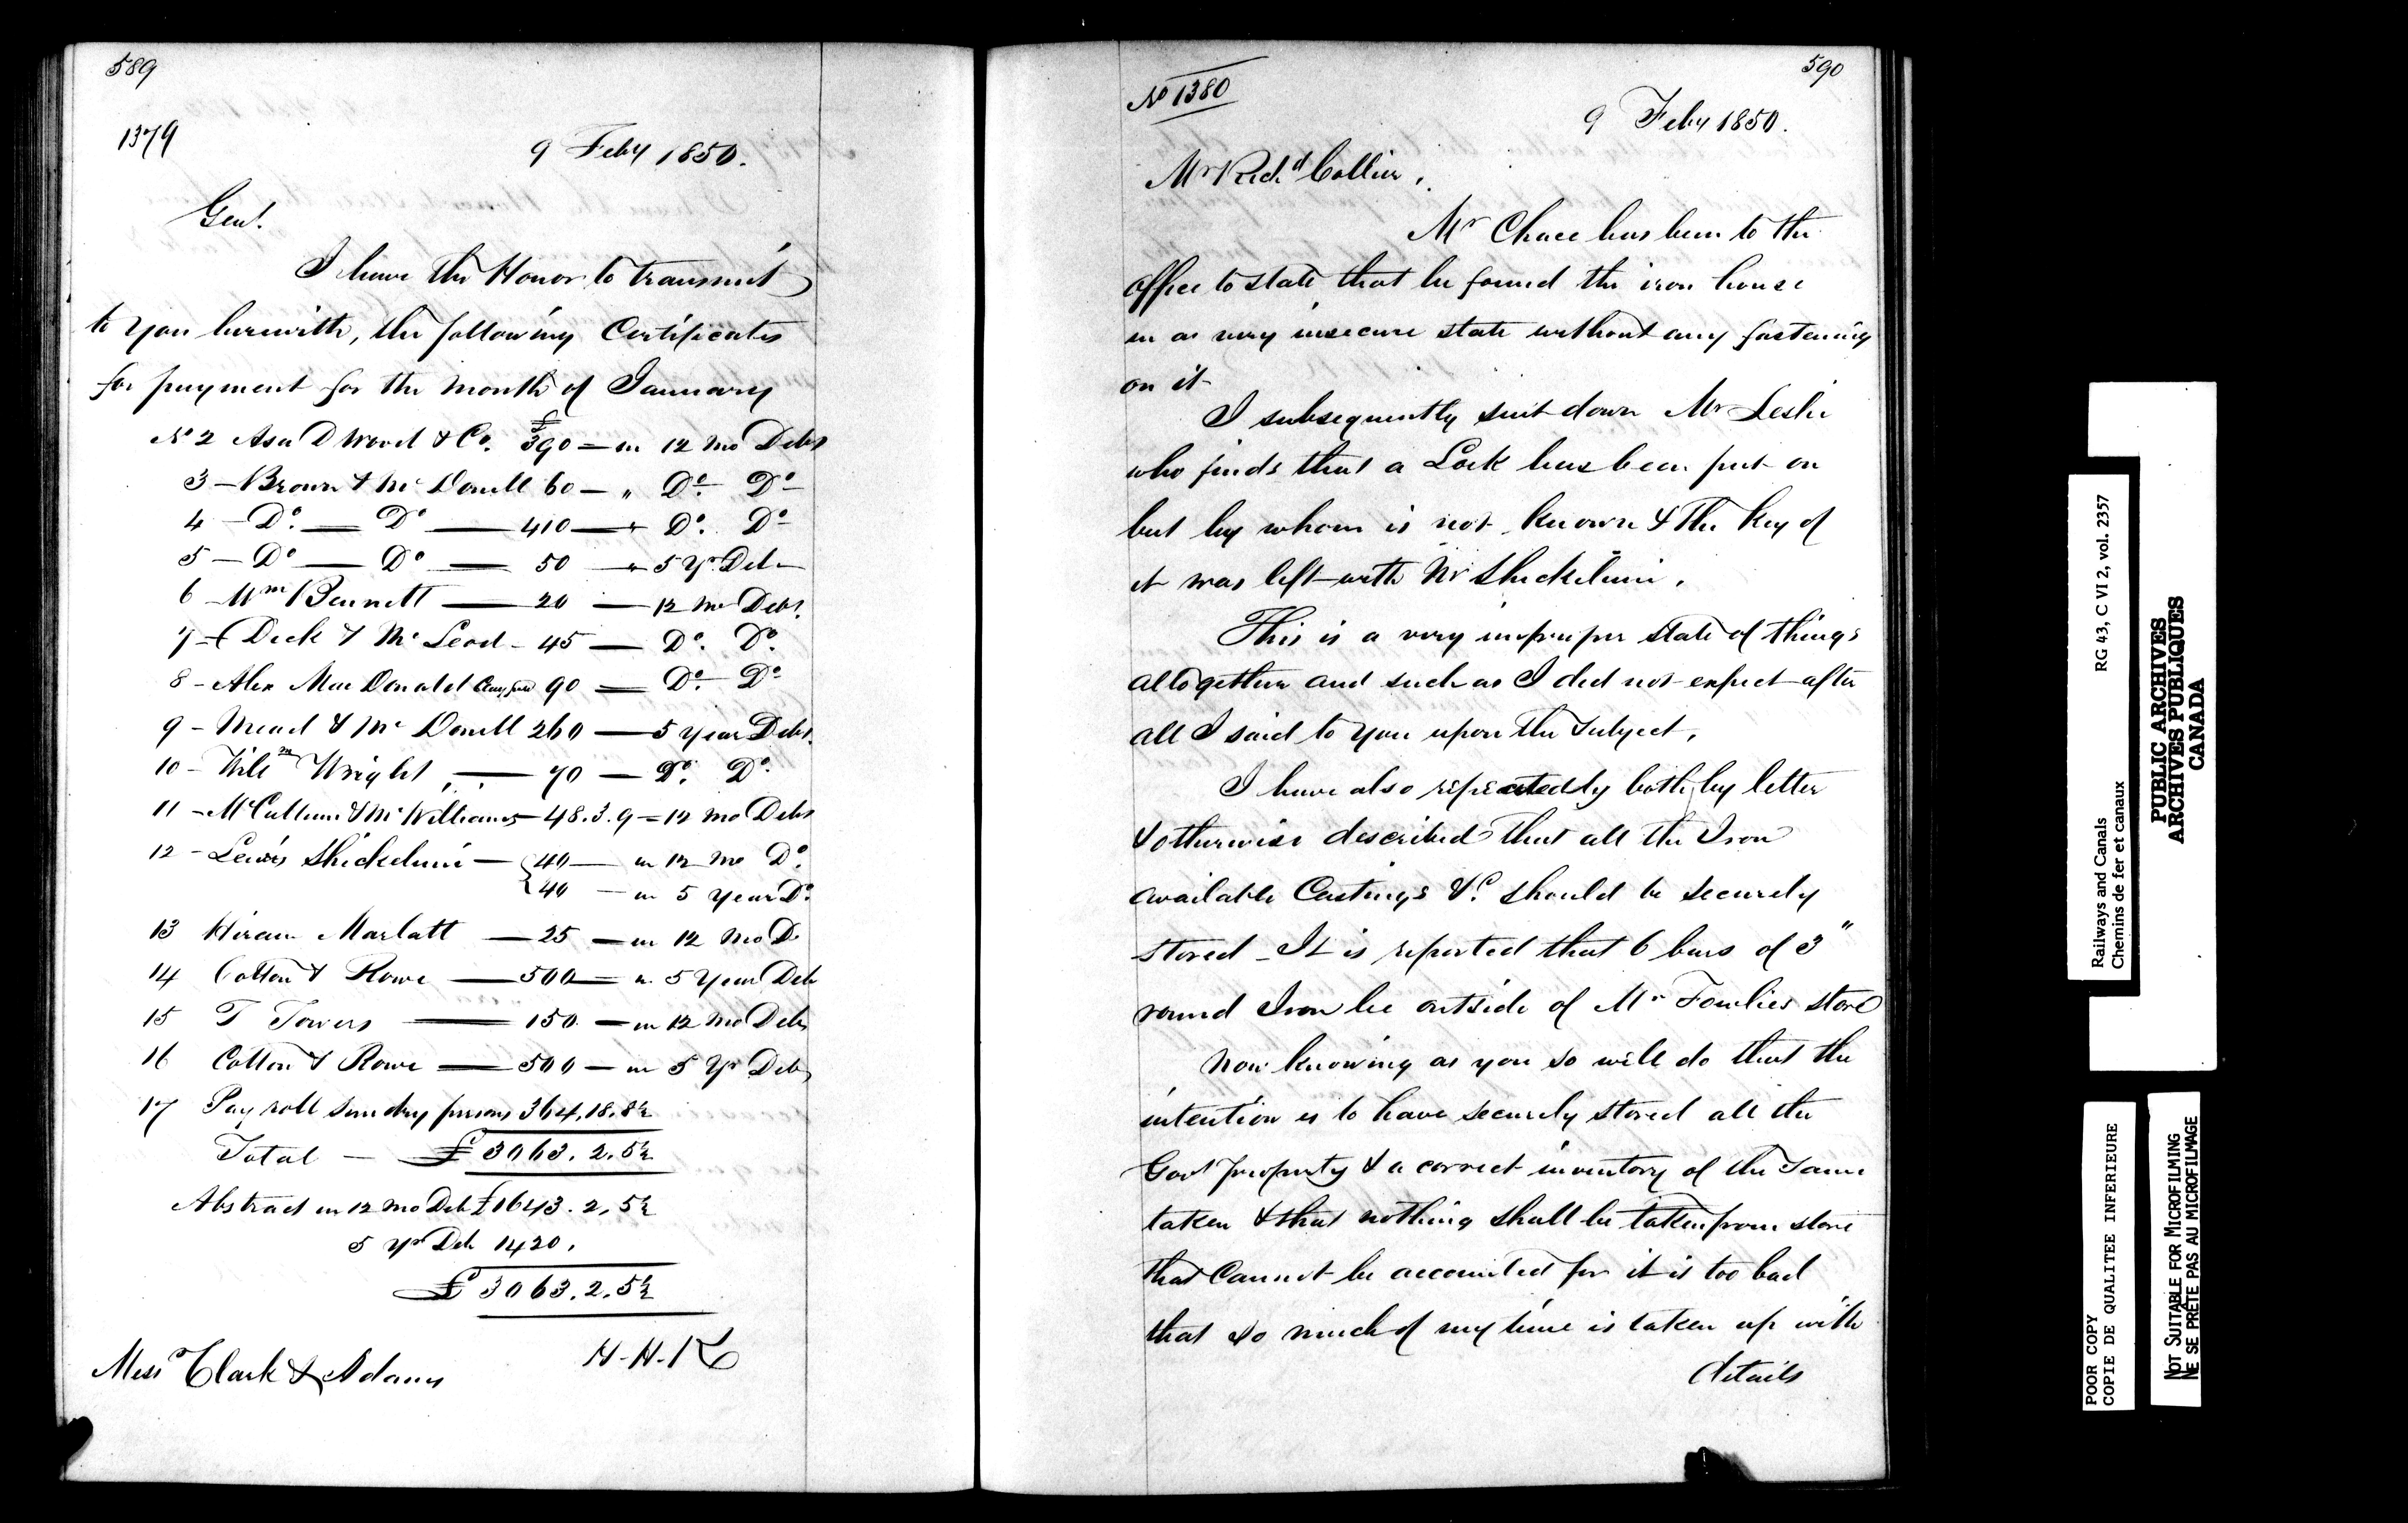 589
1379
9 Feby 1850.
Gent.
I have the Honor to transmit
to you herewith, the following Certificates
for payment for the month of January
No 2 Asa D Wood & Co. £390 — in 12 mo Debs
3 — Brown & McDonell 60 — " Do. Do
4 — Do. — Do — 410 — " Do. Do
5 — Do — Do — 50 — " 5 Yr Deb
6 Wm Bennett — 20 — 12 mo Debs.
7 — Dick & McLeod — 45 — Do. Do.
8 — Alex MacDonald 90 — Do. Do
9 — Mead & McDonell 260 — 5 year Debs.
10 — Wright — 70 — Do. Do.
11 — McCallum & McWilliams — 48.3.9 = 12 mo Debs
12 — Lewis Shickeluni — { 40 — in 12 mo Do.
{ 40 — in 5 year Do.
13 Hiram Marlatt — 25 — in 12 mo D
14 Cotton & Rowe — 500 — in 5 Year Deb
15 T Towers — 150 — in 12 mo Debs
16 Cotton & Rowe — 500 — in 5 Yr Debs
17 Pay roll sundry persons 364.18.8½
Total — £3063.2.5½
Abstract in 12 mo Deb £1643.2.5½
5 yr Deb 1420.
£3063.2.5½
H.H.K
Messrs Clark & Adams
590
No 1380
9 Feby 1850.
Mr Richd Collier,
Mr Chace has been to the
office to state that he found the iron house
in a very insecure state without any fastening
on it
I subsequently sent down Mr Leslie
who finds that a Lock has been put on
but by whom is not known & the key of
it was left with Mr Shickeluni.
This is a very improper state of things
altogether and such as I did not expect after
all I said to you upon the subject.
I have also repeatedly both by letter
& otherwise described that all the Iron
available Castings &c. should be securely
stored — It is reported that 6 bars of 3"
round Iron lie outside of Mr Fowlies store
Now knowing as you so well do that the
intention is to have securely stored all the
Govt property & a correct inventory of the same
taken & that nothing shall be taken from store
that Cannot be accounted for it is too bad
that so much of my time is taken up with
details
Railways and Canals
Chemins de fer et canaux
RG 43, C VI 2, vol. 2357
PUBLIC ARCHIVES
ARCHIVES PUBLIQUES
CANADA
POOR COPY
COPIE DE QUALITEE INFERIEURE
NOT SUITABLE FOR MICROFILMING
NE SE PRÊTE PAS AU MICROFILMAGE